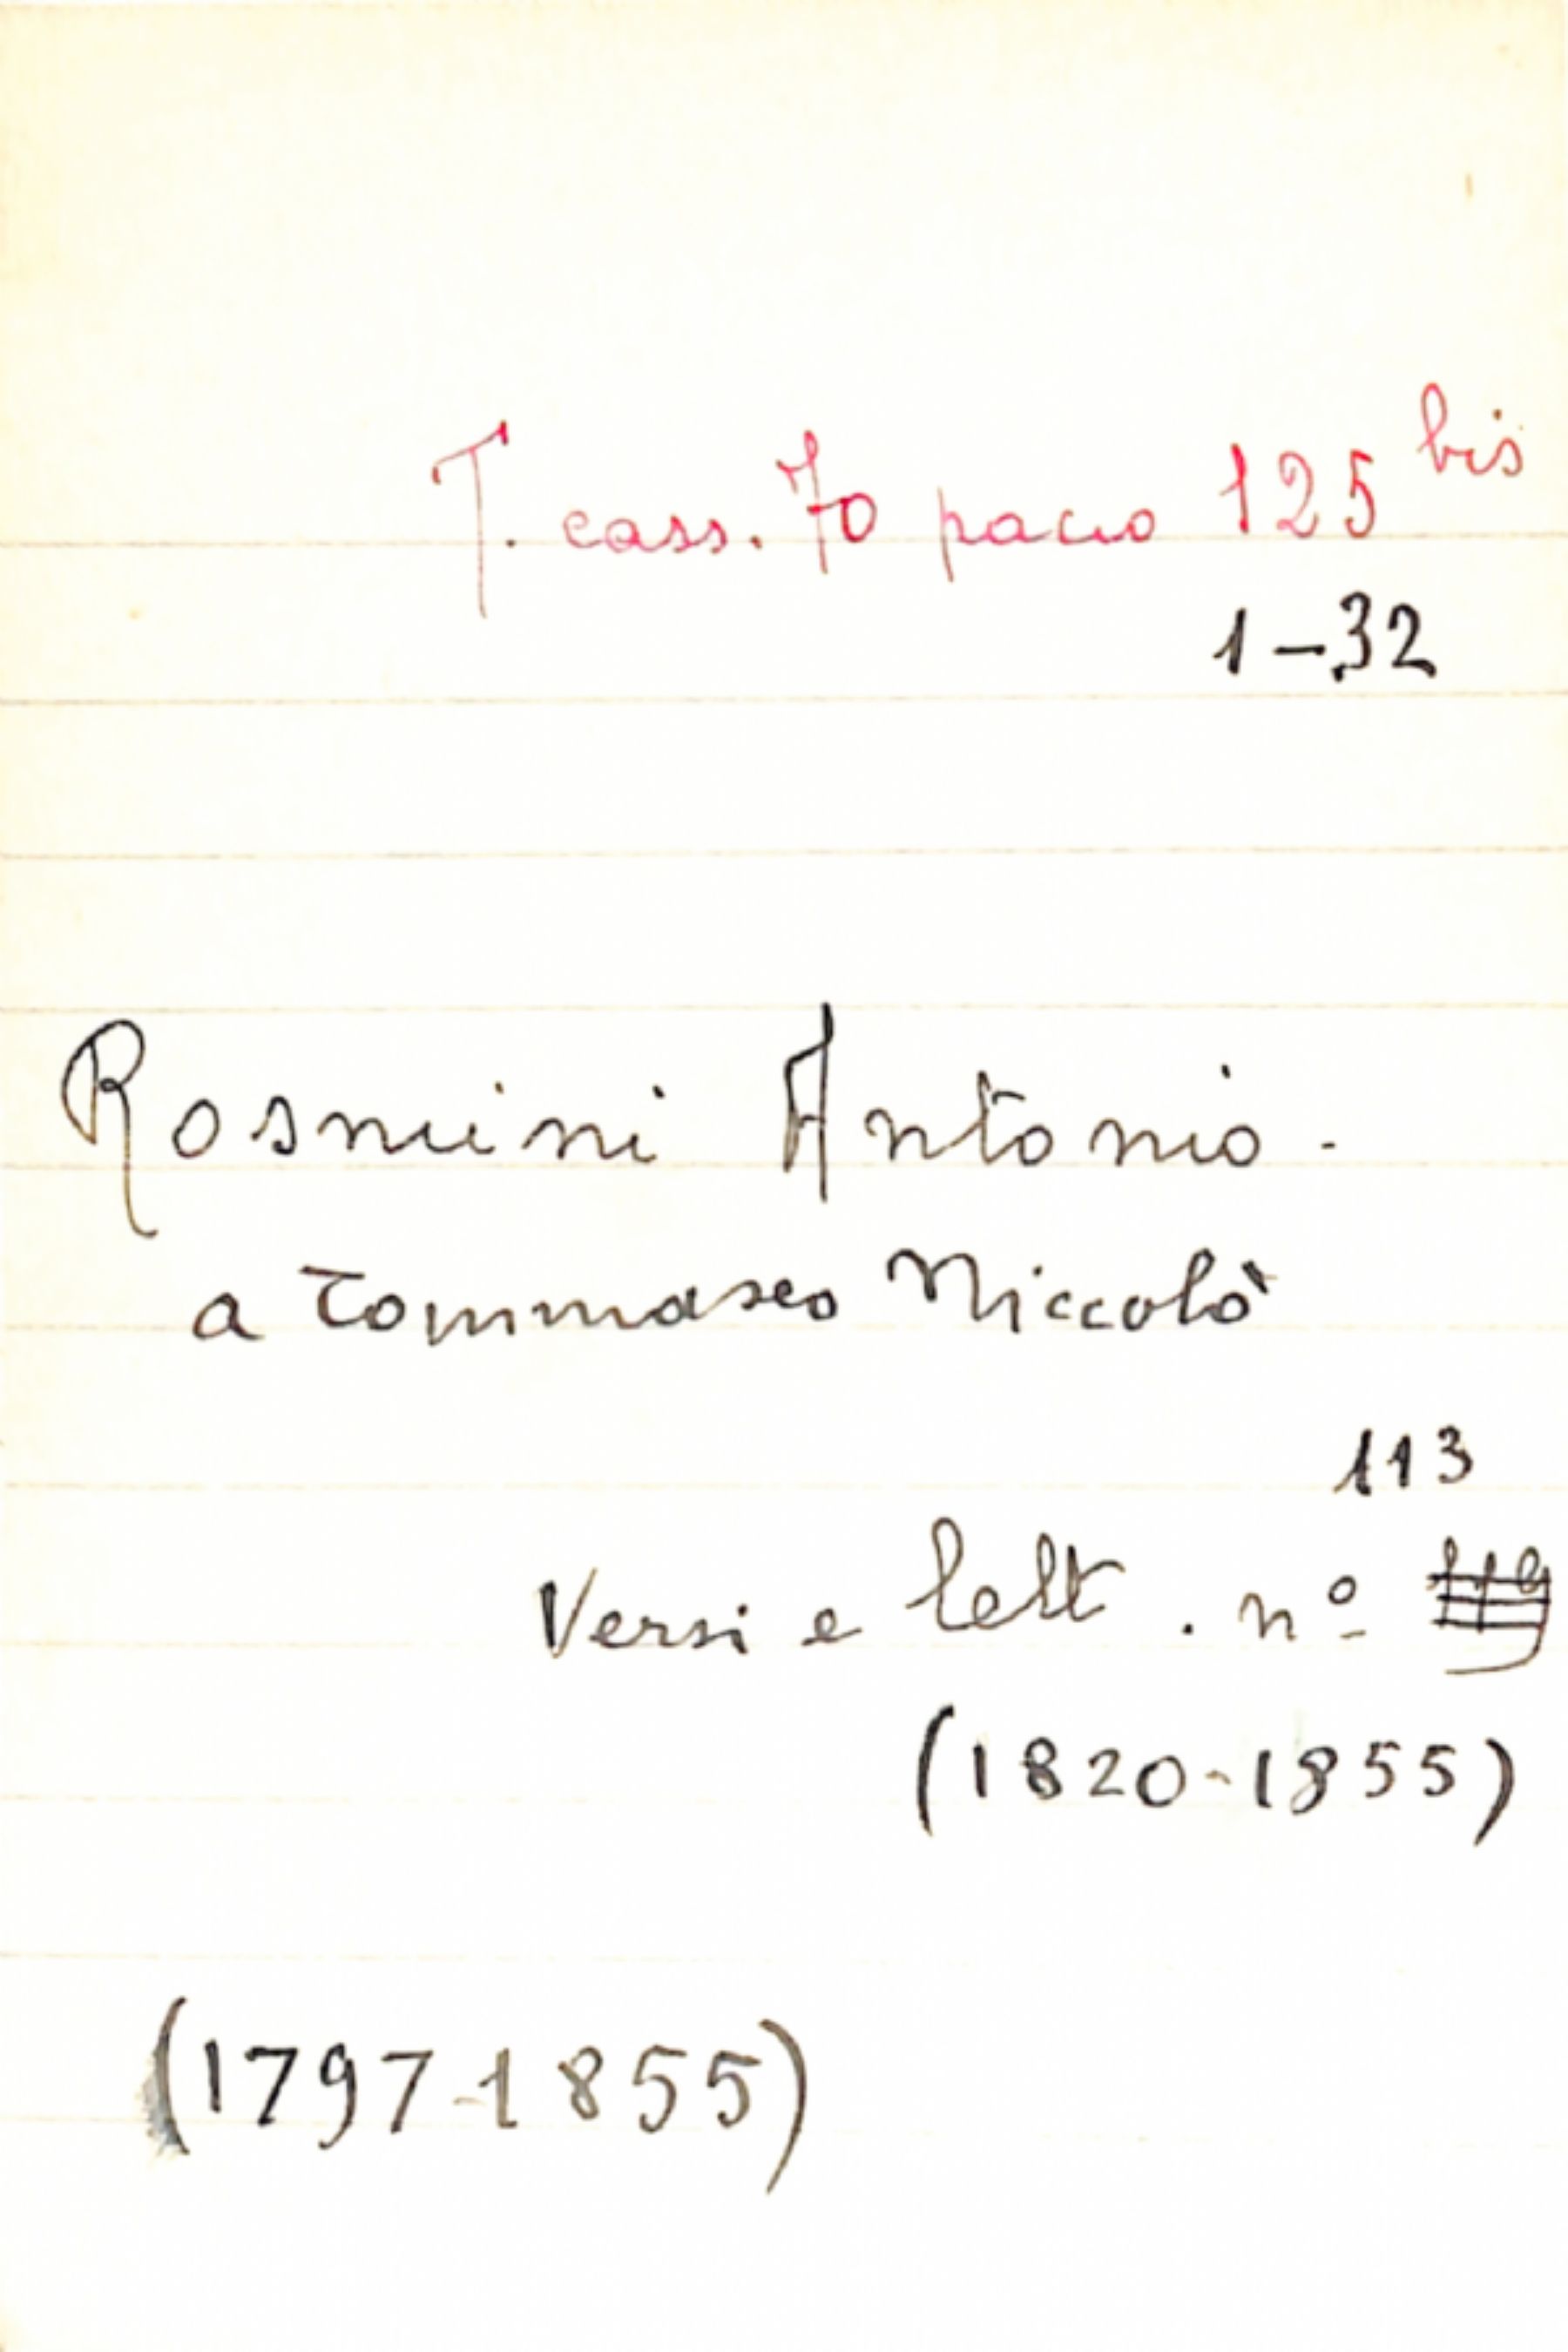 T. cass. 70 pacco 125 bis
1-32
Rosmini Antonio.
a Tommaseo Niccolò
113
Versi e lett. nº
(1820-1855)
(1797-1855)